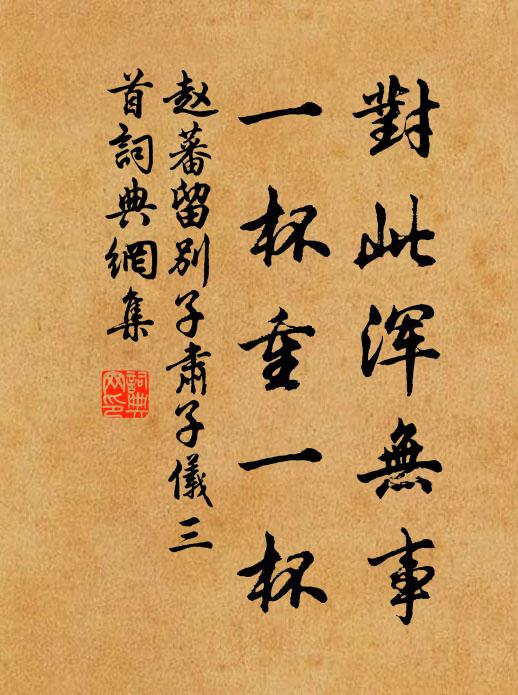 對此浑無事
一杯重一杯
赵蕃留别子肅子儀三
首詞典網集
詞典
网印